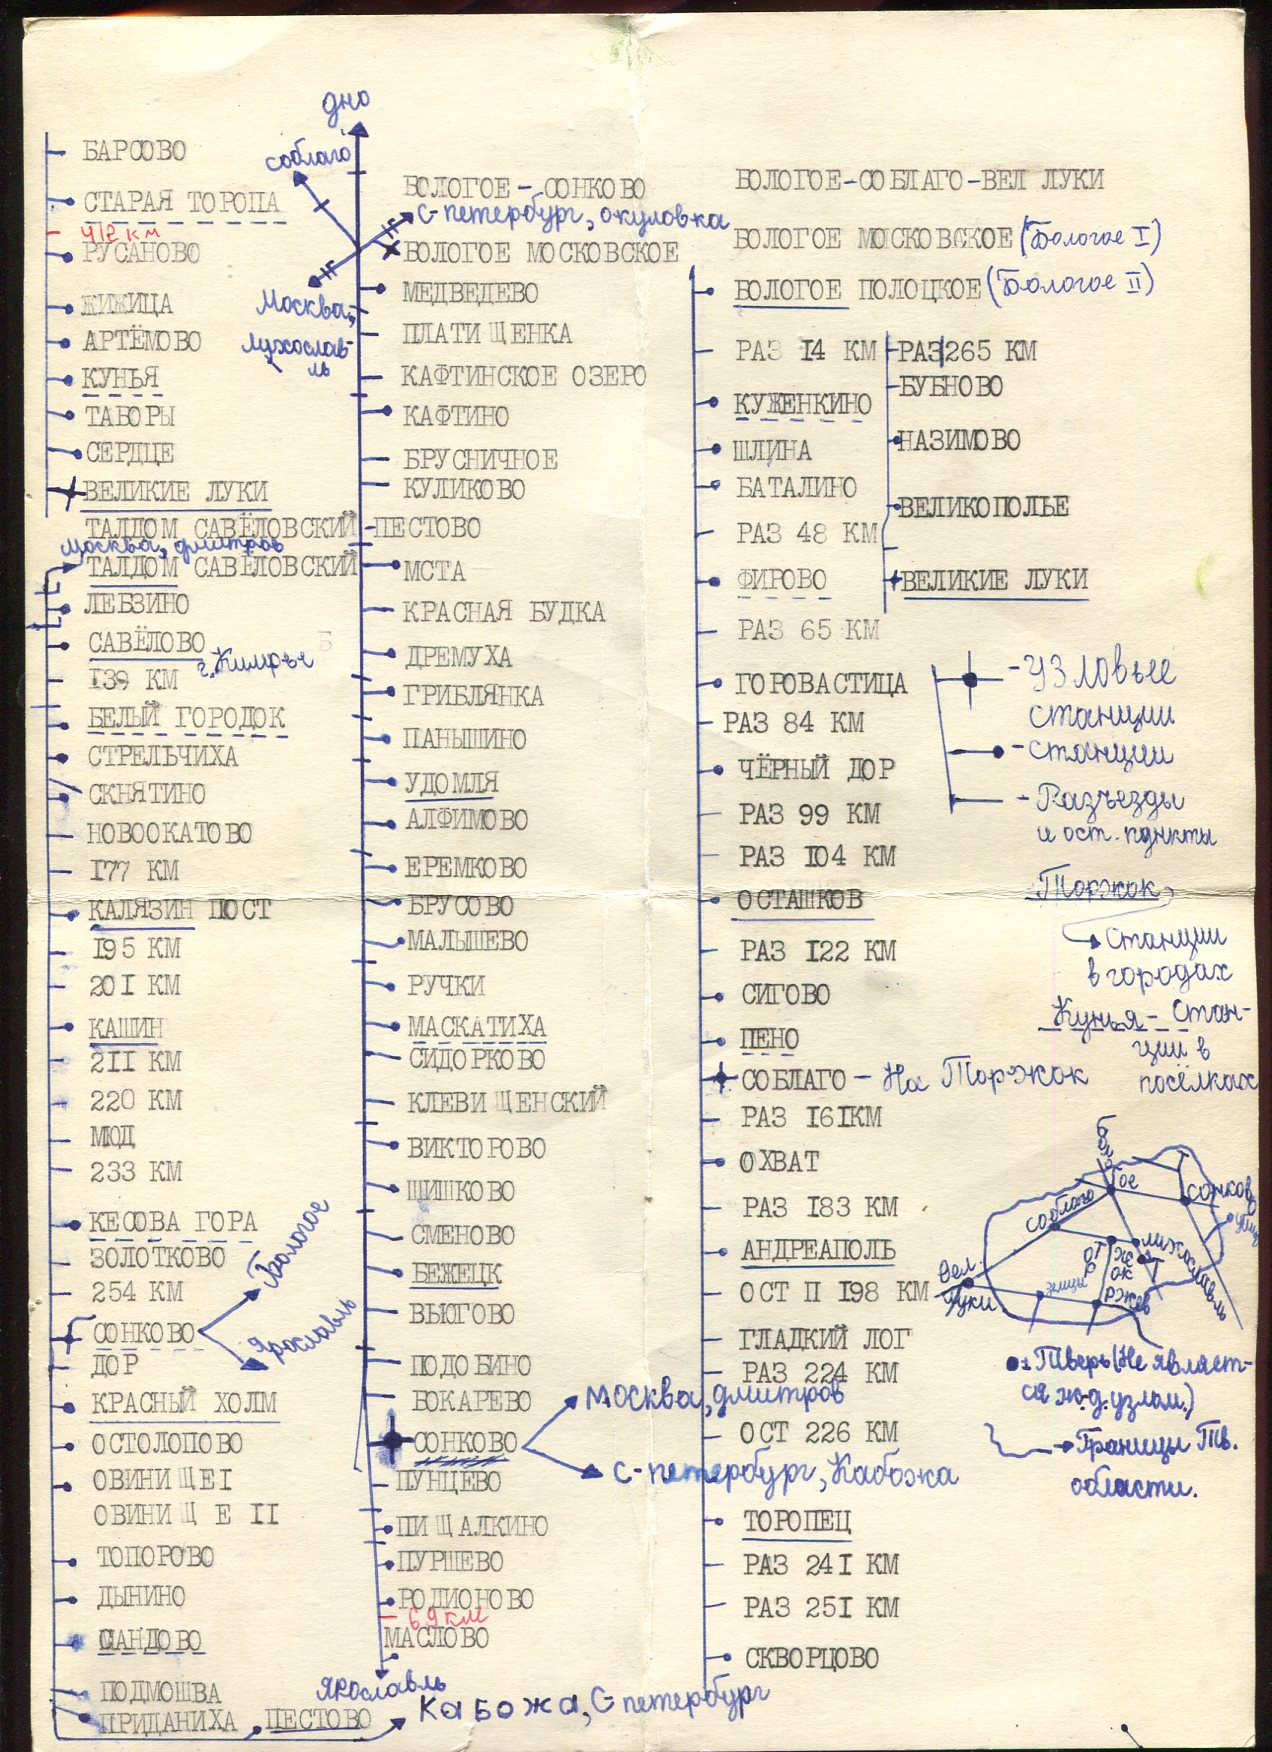 БАРСОВО
СТАРАЯ ТОРОПА
412 км
РУСАНОВО
ЖИЖИЦА
АРТЁМОВО
КУНЬЯ
ТАБОРЫ
СЕРДЦЕ
ВЕЛИКИЕ ЛУКИ
ТАЛДОМ САВЁЛОВСКИЙ-ПЕСТОВО
Москва, дмитров
ТАЛДОМ САВЁЛОВСКИЙ
ЛЕБЗИНО
САВЁЛОВО
г. Кимры
139 КМ
БЕЛЫЙ ГОРОДОК
СТРЕЛЬЧИХА
СКНЯТИНО
НОВООКАТОВО
177 КМ
КАЛЯЗИН ПОСТ
195 КМ
201 КМ
КАШИН
211 КМ
220 КМ
МЮД
233 КМ
КЕСОВА ГОРА
ЗОЛОТКОВО
254 КМ
Бологое
СОНКОВО
Ярославль
ДОР
КРАСНЫЙ ХОЛМ
ОСТОЛОПОВО
ОВИНИЩЕI
ОВИНИЩ Е II
ТОПОРОВО
ДЫНИНО
САНДОВО
ПОДМОШВА
ПРИДАНИХА
ПЕСТОВО
Кабожа, С-петербург
дно
соблаго
БОЛОГОЕ - СОНКОВО
С-петербург, окуловка
БОЛОГОЕ МОСКОВСКОЕ
Москва,
лихослав-
ль
МЕДВЕДЕВО
ПЛАТИЩЕНКА
КАФТИНСКОЕ ОЗЕРО
КАФТИНО
БРУСНИЧНОЕ
КУЛИКОВО
МСТА
КРАСНАЯ БУДКА
ДРЕМУХА
ГРИБЛЯНКА
ПАНЫШИНО
УДОМЛЯ
АЛФИМОВО
ЕРЕМКОВО
БРУСОВО
МАЛЫШЕВО
РУЧКИ
МАСКАТИХА
СИДОРКОВО
КЛЕВИЩЕНСКИЙ
ВИКТОРОВО
ШИШКОВО
СМЕНОВО
БЕЖЕЦК
ВЬЮГОВО
ПОДОБИНО
БОКАРЕВО
Москва, дмитров
СОНКОВО
С-петербург, Кабожа
ПУНЦЕВО
ПИЩАЛКИНО
ПУРШЕВО
РОДИОНОВО
69 км
МАСЛОВО
Ярославль
БОЛОГОЕ-СОБЛАГО-ВЕЛ ЛУКИ
БОЛОГОЕ МОСКОВСКОЕ (Бологое I)
БОЛОГОЕ ПОЛОЦКОЕ (Бологое II)
РАЗ 14 КМ
КУЖЕНКИНО
ШЛИНА
БАТАЛИНО
РАЗ 48 КМ
ФИРОВО
РАЗ 65 КМ
ГОРОВАСТИЦА
РАЗ 84 КМ
ЧЁРНЫЙ ДОР
РАЗ 99 КМ
РАЗ 104 КМ
ОСТАШКОВ
РАЗ 122 КМ
СИГОВО
ПЕНО
СОБЛАГО - На Торжок
РАЗ 161КМ
ОХВАТ
РАЗ 183 КМ
АНДРЕАПОЛЬ
ОСТ П 198 КМ
ГЛАДКИЙ ЛОГ
РАЗ 224 КМ
ОСТ 226 КМ
ТОРОПЕЦ
РАЗ 241 КМ
РАЗ 251 КМ
СКВОРЦОВО
РАЗ 265 КМ
БУБНОВО
НАЗИМОВО
ВЕЛИКОПОЛЬЕ
ВЕЛИКИЕ ЛУКИ
- Узловые
станции
- станции
- Разъезды
и ост. пункты
Торжок
Станции
в городах
Кунья - Стан-
ции в
посёлках
Бологое
Сонково
соблаго
лихославль
Торжок
Т
Вел.
Луки
жицы
Ржев
Тверь (Не являет-
ся ж.д. узлом.)
Границы Тв.
области.